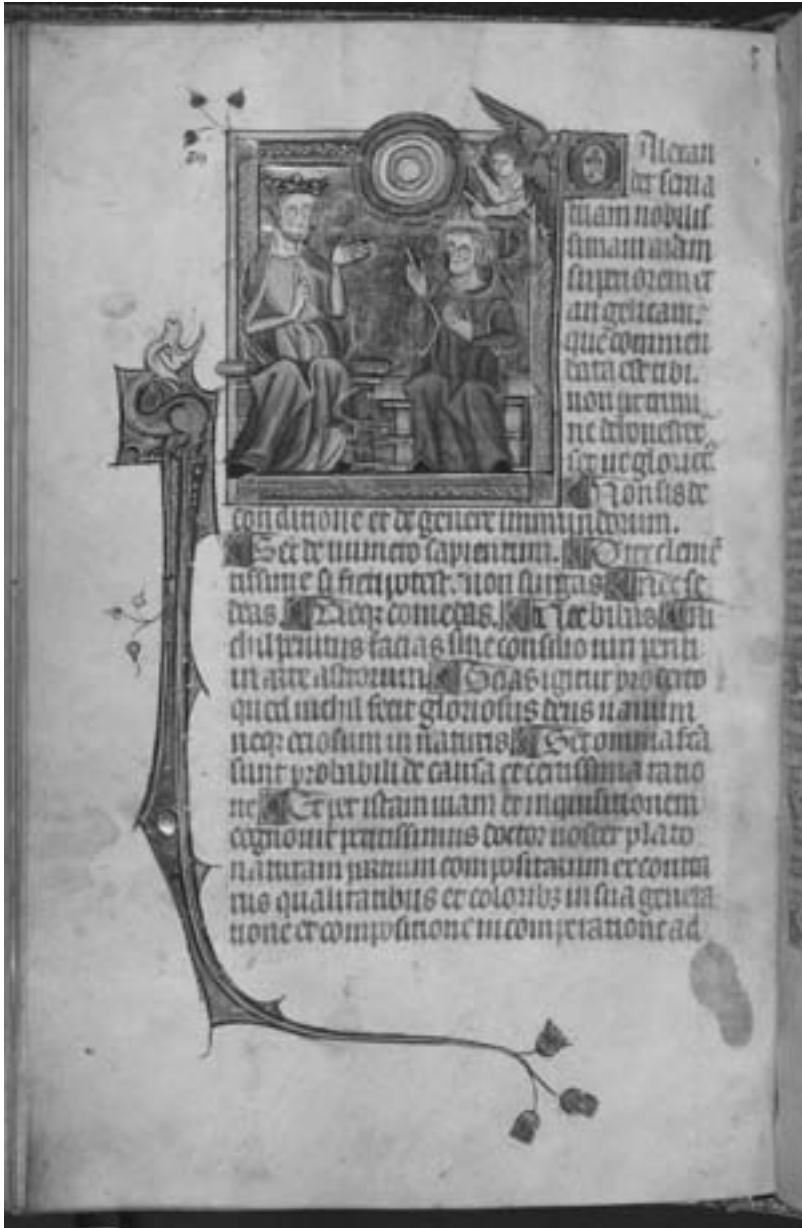 O Alexan
der serua
tuam nobilis
simam
superiorem et
angelicam.
que commen
data est tibi.
non ut
ne
set ut
Non sis de
conditione et de genere immundorum.
Set de numero sapientum. O rex clemē
tissime si fieri potest. non surgas Nec se
deas. Neqȝ comedas. Nec bibas Ni
chil penitus facias sine consilio uiri periti
in arte astrorum. Scias igitur pro certo
quod nichil fecit gloriosus deus uanum
neqȝ ociosum in naturis Set omnia fcā
sunt probabili de causa et certissima ratio
ne Et per istam uiam et inquisitionem
cognouit peritissimus doctor noster plato
naturam partium compositarum
qualitatibus et coloribȝ in sua genera
tione et compositione in ad